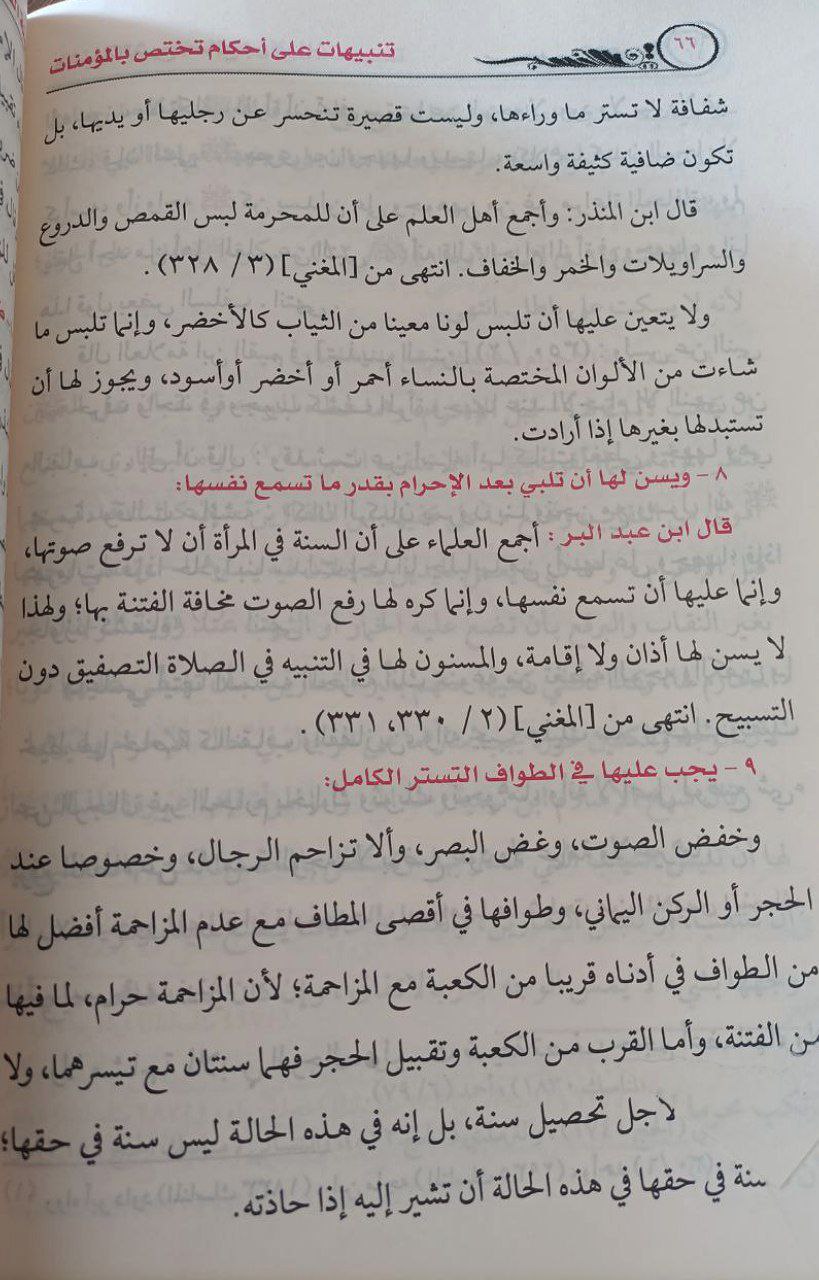 ٦٦
تنبيهات على أحكام تختص بالمؤمنات
شفافة لا تستر ما وراءها، وليست قصيرة تنحسر عن رجليها أو يديها، بل
تكون ضافية كثيفة واسعة.
قال ابن المنذر: وأجمع أهل العلم على أن للمحرمة لبس القمص والدروع
والسراويلات والخمر والخفاف. انتهى من [المغني] (٣/ ٣٢٨) .
ولا يتعين عليها أن تلبس لونا معينا من الثياب كالأخضر، وإنما تلبس ما
شاءت من الألوان المختصة بالنساء أحمر أو أخضر أوأسود، ويجوز لها أن
تستبدلها بغيرها إذا أرادت.
٨ – ويسن لها أن تلبي بعد الإحرام بقدر ما تسمع نفسها:
قال ابن عبد البر : أجمع العلماء على أن السنة في المرأة أن لا ترفع صوتها،
وإنما عليها أن تسمع نفسها، وإنما كره لها رفع الصوت مخافة الفتنة بها؛ ولهذا
لا يسن لها أذان ولا إقامة، والمسنون لها في التنبيه في الصلاة التصفيق دون
التسبيح. انتهى من [المغني] (٢/ ٣٣٠، ٣٣١) .
٩ – يجب عليها في الطواف التستر الكامل:
وخفض الصوت، وغض البصر، وألا تزاحم الرجال، وخصوصا عند
الحجر أو الركن اليماني، وطوافها في أقصى المطاف مع عدم المزاحمة أفضل لها
من الطواف في أدناه قريبا من الكعبة مع المزاحمة؛ لأن المزاحمة حرام، لما فيها
من الفتنة، وأما القرب من الكعبة وتقبيل الحجر فهما سنتان مع تيسرهما، ولا
لاجل تحصيل سنة، بل إنه في هذه الحالة ليس سنة في حقها؛
في حقها في هذه الحالة أن تشير إليه إذا حاذته.